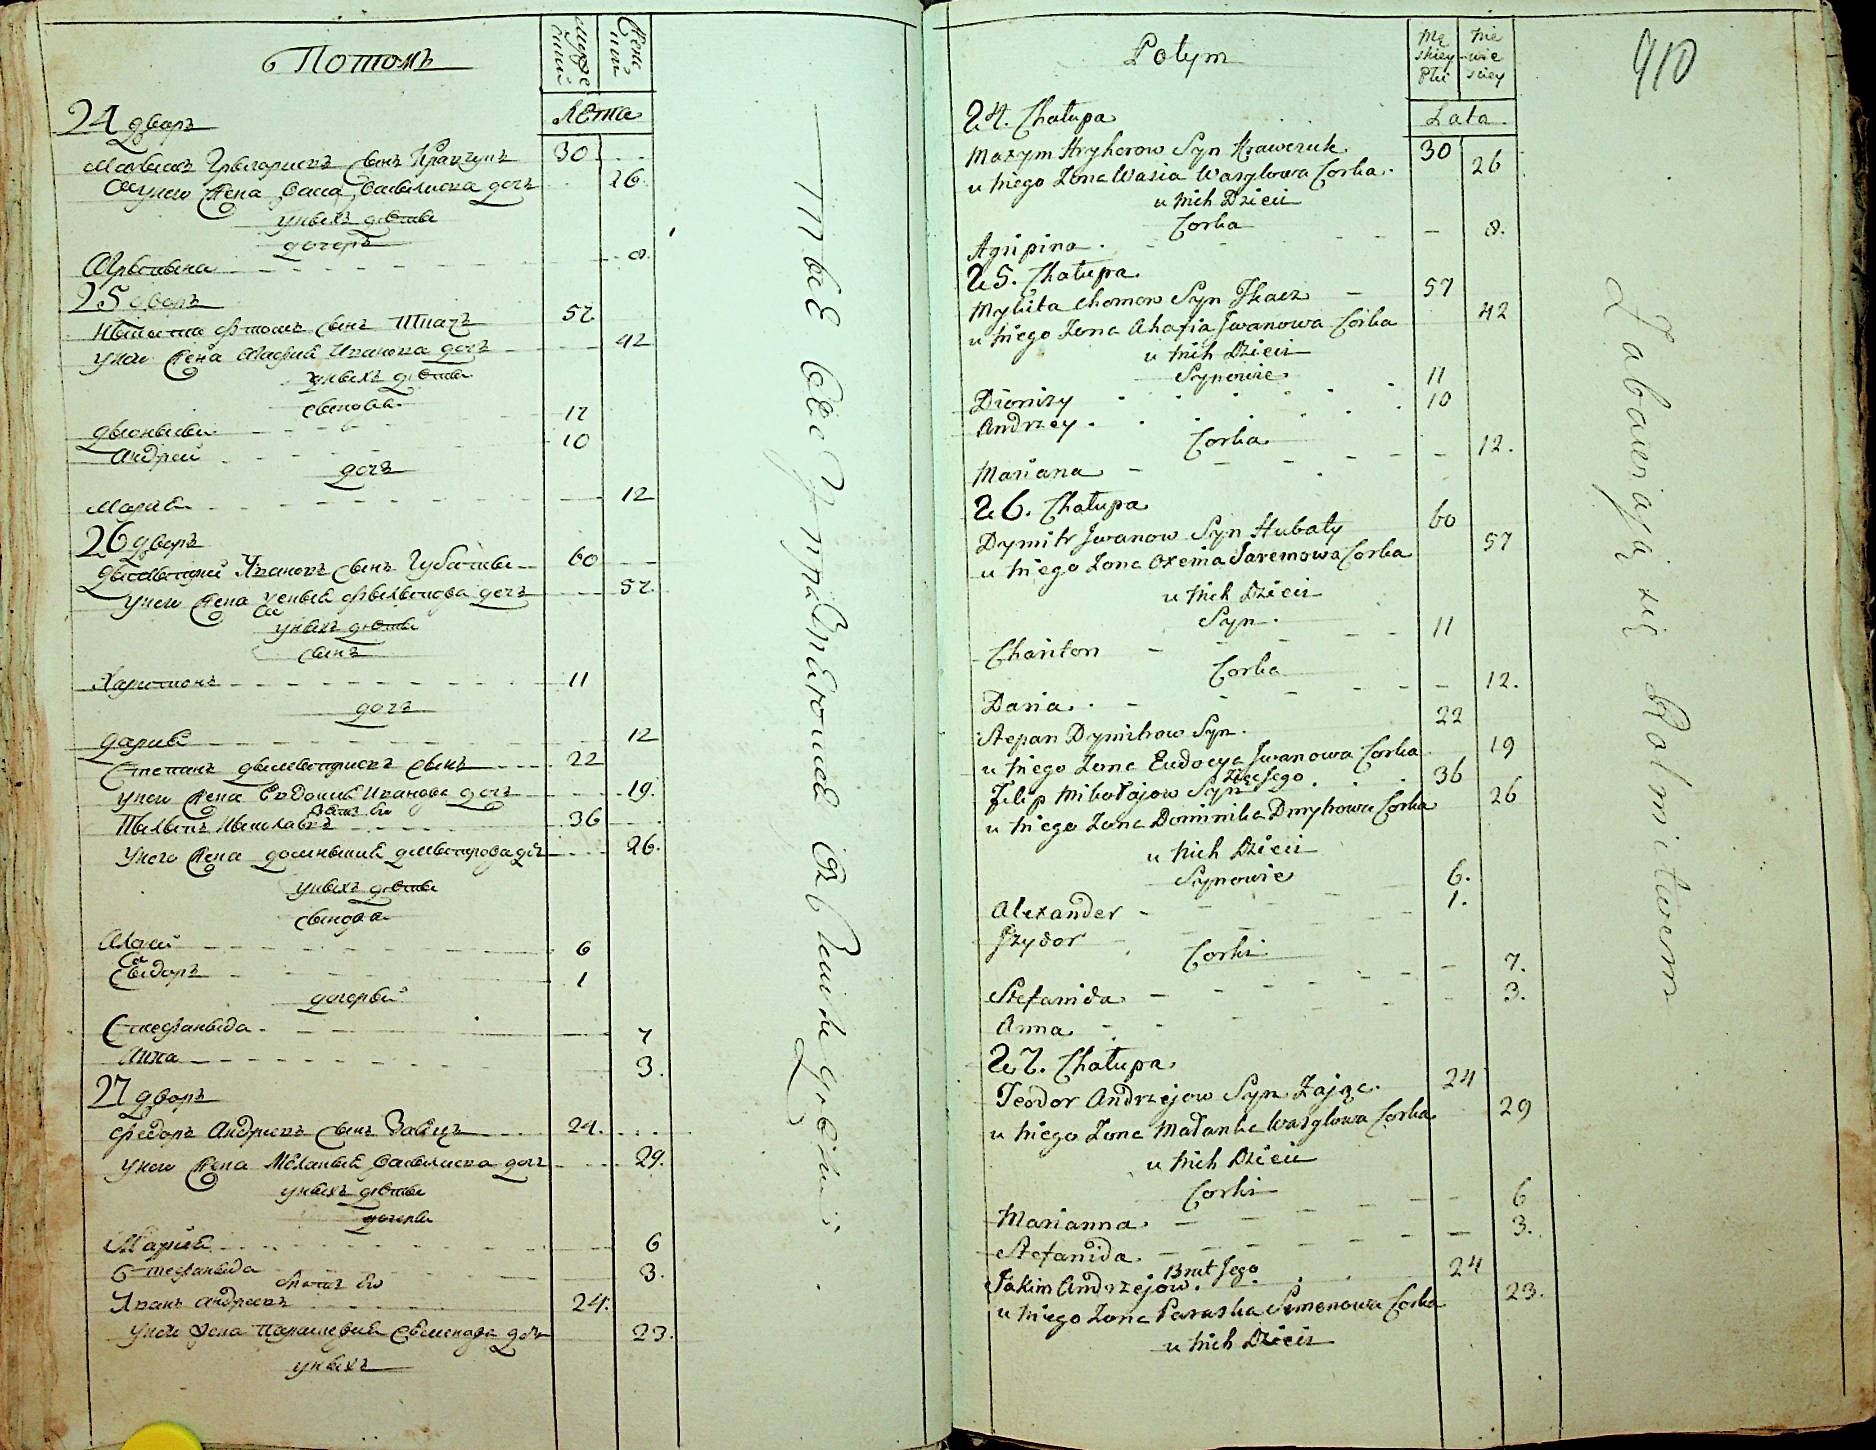 Потомъ
муже
ский
Жен
ский
Лѣта
24 дворъ
Григориевъ сынъ Кравчукъ 30
у него жена Васса Василиева дочь 26
у ныхъ дѣты
дочеръ
8
25 дворъ
сынъ Ткачъ 57
у него жена Агафия Иванова дочь 42
у ныхъ дѣты
сынове
Дионысы 11
Андрей 10
дочъ
Мария 12
26 дворъ
Ивановъ сынъ Губатый 60
у него жена дочъ 57
у ныхъ дѣты
сынъ
Харитонъ 11
дочъ
Дария 12
Степанъ сынъ 22
у него жена Евдокия Иванова дочъ 19.
зять его
36
у него жена Доминикия Дмитрова дочъ 26.
у ныхъ дѣты
сынова
6
Сыдоръ 1
дочеры
Стефаныда 7
Анна 3.
27 дворъ
Федоръ Андреевъ сынъ Заяцъ 24.
у него жена Мелания Василиева дочъ 29.
у ныхъ дѣты
дочеры
Мария 6
Стефаныда 3.
братъ его
Андреевъ 24.
у него жена Параскевия Семенова дочъ 23.
у ныхъ
Potym
Mę
skiey
Płci
Nie
wie
sciey
Lata
910
24. Chałupa
Maxym Hryhorow Syn Krawczuk 30
u niego Zona Wasia Wasylowa Corka. 26
u nich Dzieci
Corka
Agripina. 8.
25. Chałupa
Mykita Chomow Syn Tkacz 57
u niego Zona Ahafia Jwanowa Corka 42
u nich Dzieci
Synowie
Dionizy 11
Andrzey. 10
Corka
Mariana 12.
26. Chałupa
Dymitr Jwanow Syn Hubaty 60
u niego Zona Oxenia Jaremowa Corka 57
u nich Dzieci
Syn.
Chariton 11
Corka
Daria. 12.
Stepan Dymitrow Syn. 22
u niego Zona Eudocya Jwanowa Corka 19
Zięć Jego
Filip Mikołajow Syn 36
u niego Zona Dominika Dmytrowa Corka 26
u nich Dzieci
Synowie
Alexander 6.
Jzydor 1.
Corki
Stefanida 7.
Anna 3.
27. Chałupa
Teodor Andrzejow Syn Zając. 24
u niego Zona Małanka Wasylowa Corka 29
u nich Dzieci
Corki
Marianna. 6
Stefanida 3.
Brat Jego
Jakim Andrzejow. 24
u niego Zona Paraska Semenowa Corka 23.
u nich Dzieci
Zabawiają się Rolnictwem